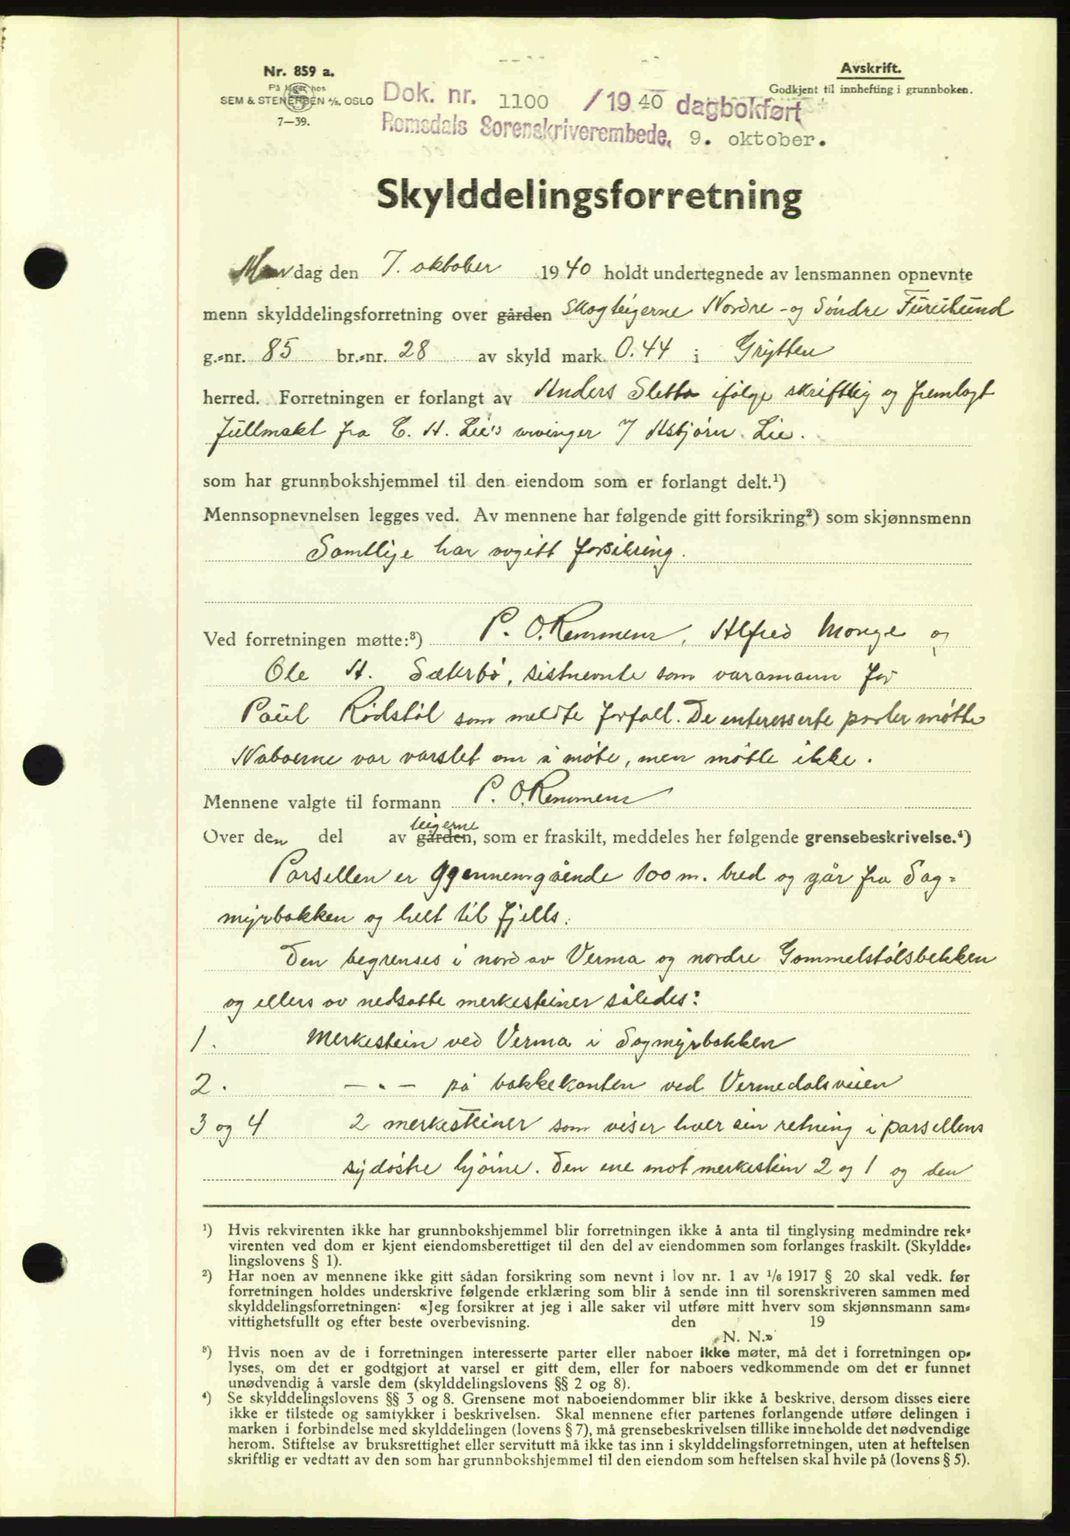 Nr. 859 a.
På lager hos
SEM & STENERSEN A/S, OSLO
7—39.
Avskrift.
Godkjent til innhefting i grunnboken.
Dok. nr. 1100 /1940 dagbokført
Romsdals Sorenskriverembede, 9. oktober.
Skylddelingsforretning
Mandag den 7. oktober 1940 holdt undertegnede av lensmannen opnevnte
menn skylddelingsforretning over gården Skogteigerne Nordre - og Søndre Furulund
g.-nr. 85 br.-nr. 28 av skyld mark 0.44 i Grytten
herred. Forretningen er forlangt av Anders Sletta ifølge skriftlig og fremlagt
fullmakt fra E. A. Lie's arvinger v/ Asbjørn Lie.
som har grunnbokshjemmel til den eiendom som er forlangt delt.¹)
Mennsopnevnelsen legges ved. Av mennene har følgende gitt forsikring²) som skjønnsmenn
Samtlige har avgitt forsikring.
Ved forretningen møtte:³) P. O. Remmem, Alfred Monge og
Ole H. Sæterbø, sistnevnte som varamann for
Paul Rødstøl som meldte forfall. De interesserte parter møtte
Naboerne var varslet om å møte, men møtte ikke.
Mennene valgte til formann P. O. Remmem
Over den del av gården teigerne, som er fraskilt, meddeles her følgende grensebeskrivelse.⁴)
Parsellen er ggennemgående 100 m. bred og går fra Sag-
myrbakken og helt til fjells.
Den begrenses i nord av Verma og nordre Gammelstølsbekken
og ellers av nedsatte merkesteiner således:
1. Merkestein ved Verma i Sagmyrbakken
2. — " — på bakkekanten ved Vermedalsveien
3 og 4 2 merkesteiner som viser hver sin retning i parsellens
sydøstre hjørne. Den ene mot merkestein 2 og 1 og den
¹) Hvis rekvirenten ikke har grunnbokshjemmel blir forretningen ikke å anta til tinglysing medmindre rek-
virenten ved dom er kjent eiendomsberettiget til den del av eiendommen som forlanges fraskilt. (Skyldde-
lingslovens § 1).
²) Har noen av mennene ikke gitt sådan forsikring som nevnt i lov nr. 1 av 1/6 1917 § 20 skal vedk. før
forretningen holdes underskrive følgende erklæring som blir å sende inn til sorenskriveren sammen med
skylddelingsforretningen: «Jeg forsikrer at jeg i alle saker vil utføre mitt hverv som skjønnsmann sam-
vittighetsfullt og efter beste overbevisning. den 19
N. N.»
³) Hvis noen av de i forretningen interesserte parter eller naboer ikke møter, må det i forretningen op-
lyses, om det er godtgjort at varsel er gitt dem, eller for naboers vedkommende om det er funnet
unødvendig å varsle dem (skylddelingslovens §§ 2 og 8).
⁴) Se skylddelingslovens §§ 3 og 8. Grensene mot naboeiendommer blir ikke å beskrive, dersom disses eiere
ikke er tilstede og samtykker i beskrivelsen. Skal mennene efter partenes forlangende utføre delingen i
marken i forbindelse med skylddelingen (lovens § 7), må grensebeskrivelsen tillike inneholde det nødvendige
herom. Stiftelse av bruksrettighet eller servitutt må ikke tas inn i skylddelingsforretningen, uten at heftelsen
skriftlig er vedtatt av den som har grunnbokshjemmel til den eiendom som heftelsen skal hvile på (lovens § 5).